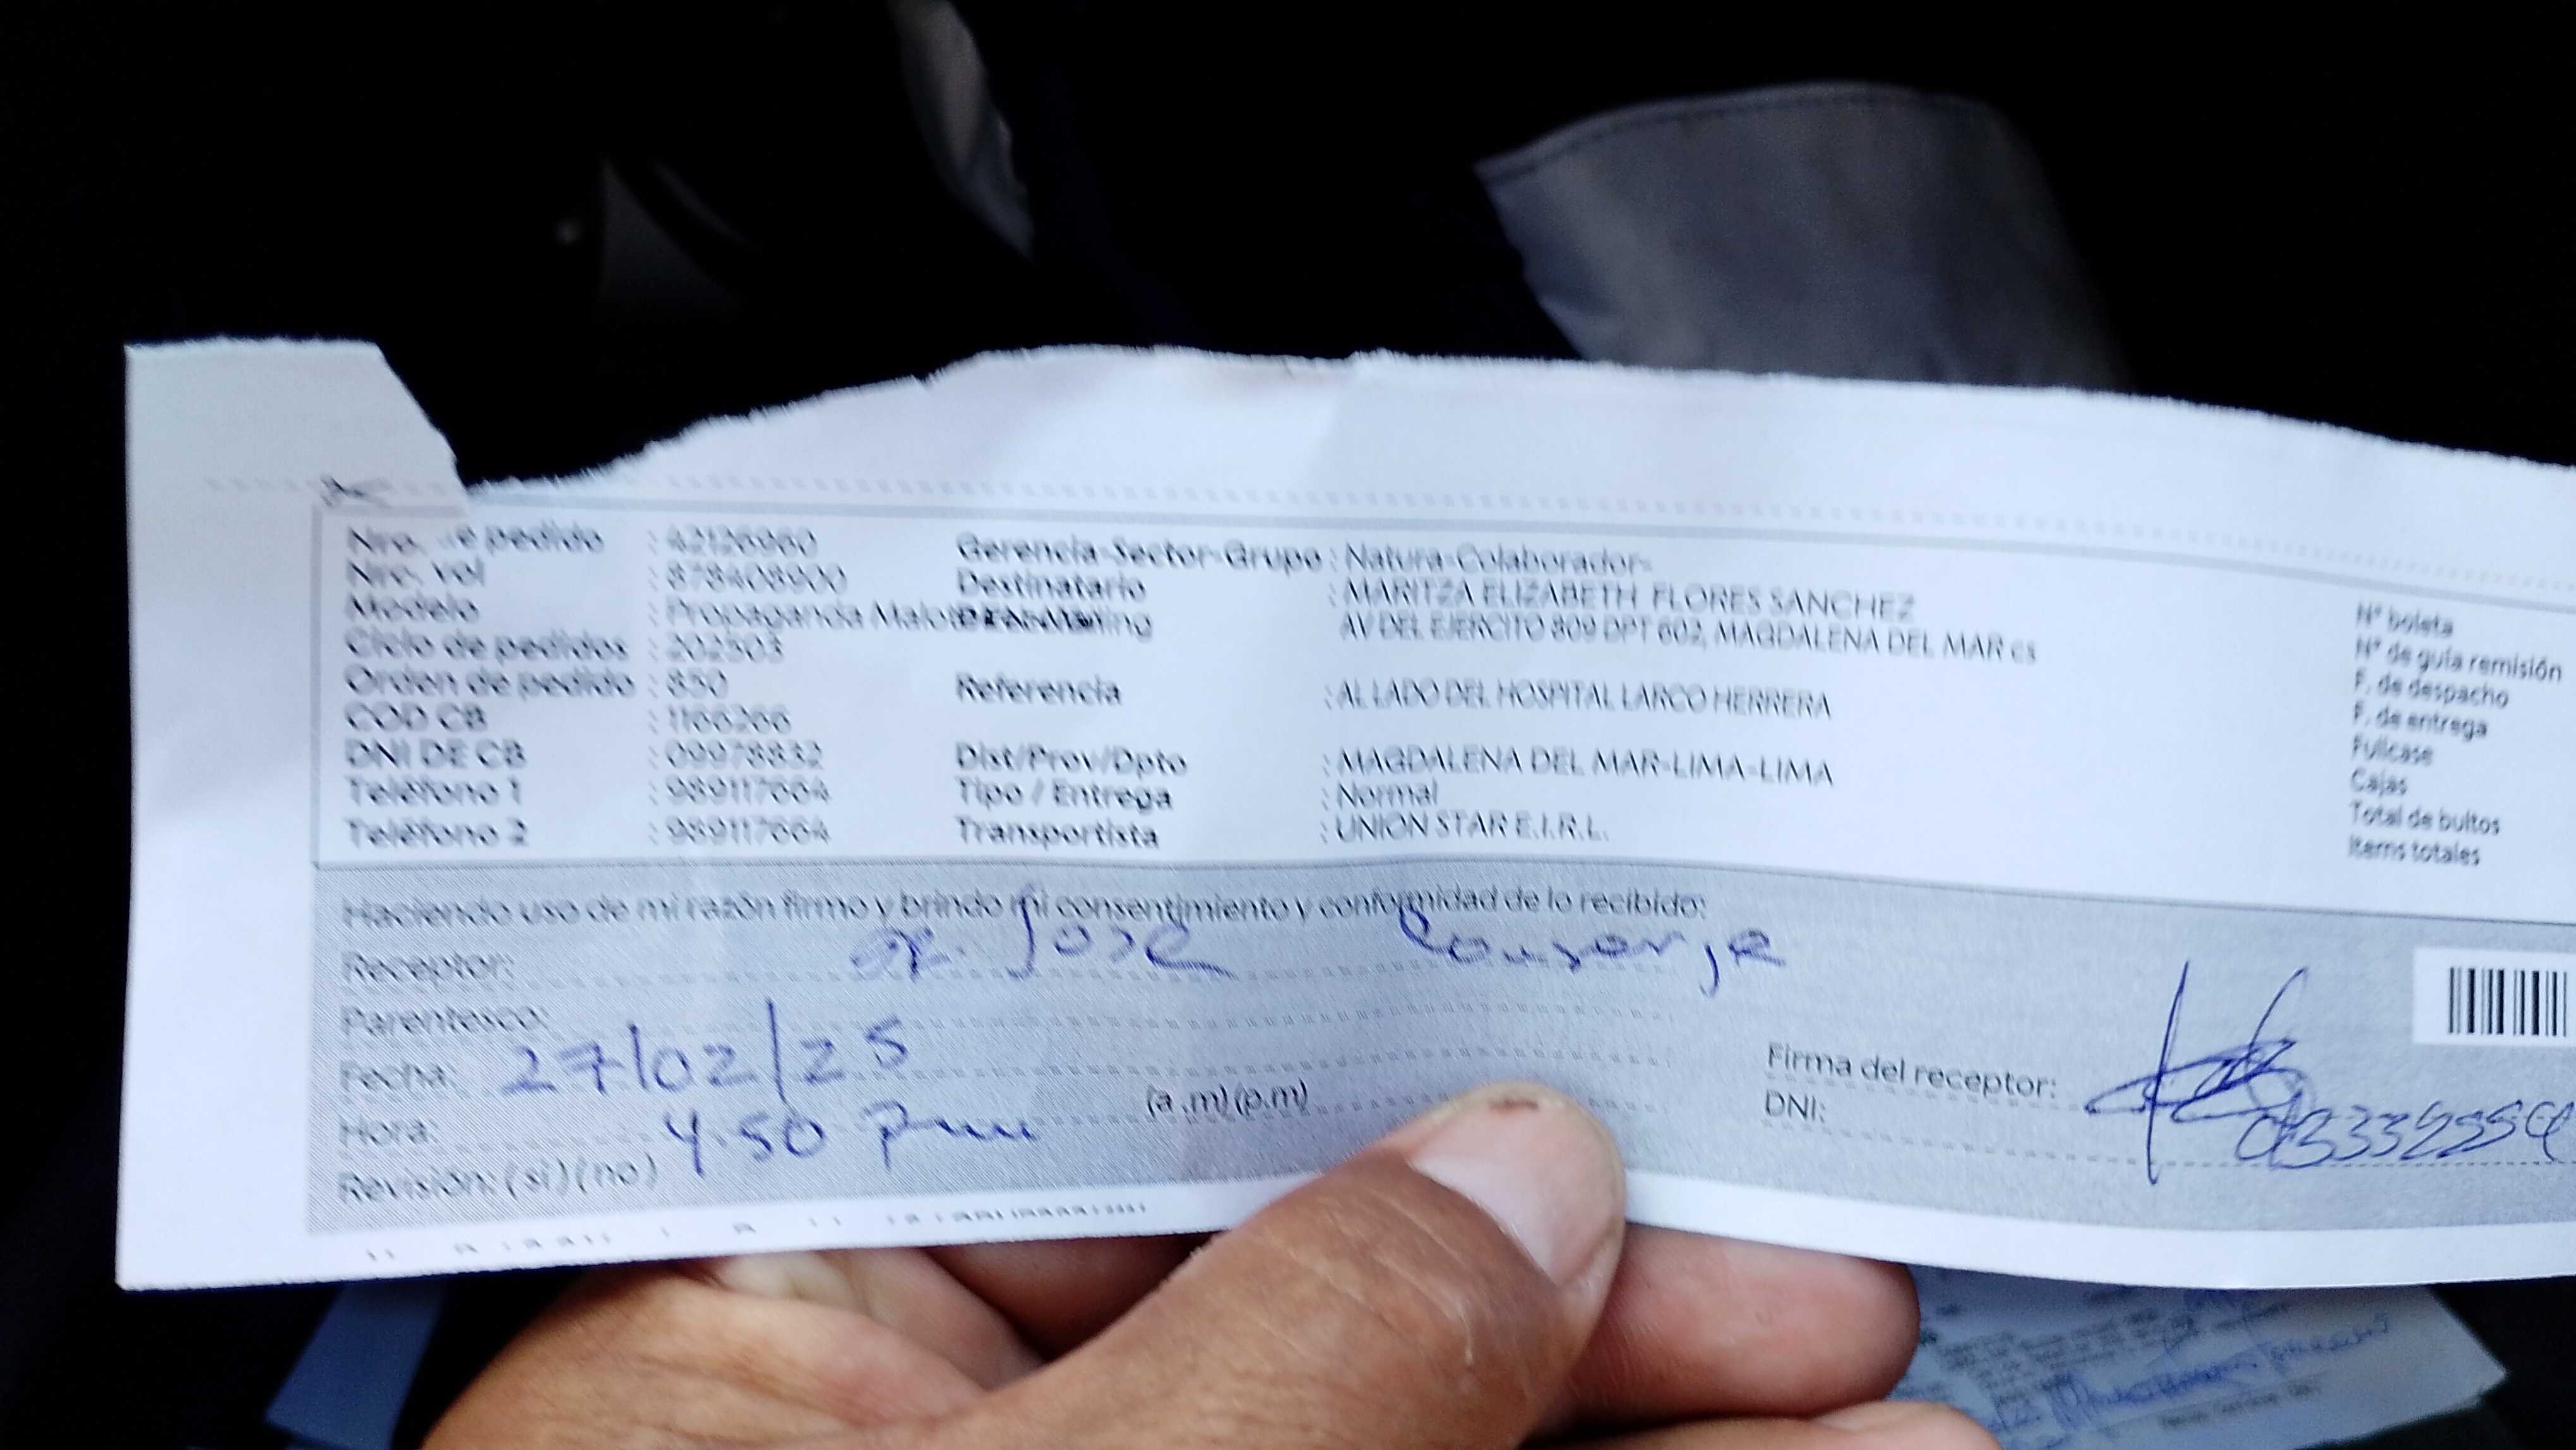 Nro. e pedido : 42126960
Nro. vol : 878408900
Modelo : Propaganda
Ciclo de pedidos : 202503
Orden de pedido : 850
COD CB : 1166266
DNI DE CB : 09978832
Teléfono 1 : 989117664
Teléfono 2 : 989117664
Gerencia-Sector-Grupo : Natura-Colaborador-
Destinatario : MARITZA ELIZABETH FLORES SANCHEZ
AV DEL EJERCITO 809 DPT 602, MAGDALENA DEL MAR cs
Referencia : AL LADO DEL HOSPITAL LARCO HERRERA
Dist/Prov/Dpto : MAGDALENA DEL MAR-LIMA-LIMA
Tipo / Entrega : Normal
Transportista : UNION STAR E.I.R.L.
N° boleta
N° de guía remisión
F. de despacho
F. de entrega
Fullcase
Cajas
Total de bultos
Items totales
Haciendo uso de mi razón firmo y brindo mi consentimiento y conformidad de lo recibido:
Receptor: Jose Conserje
Parentesco:
Fecha: 27/02/25
Hora: 4.50 pm (a.m)(p.m)
Revisión: (si) (no)
Firma del receptor:
DNI: